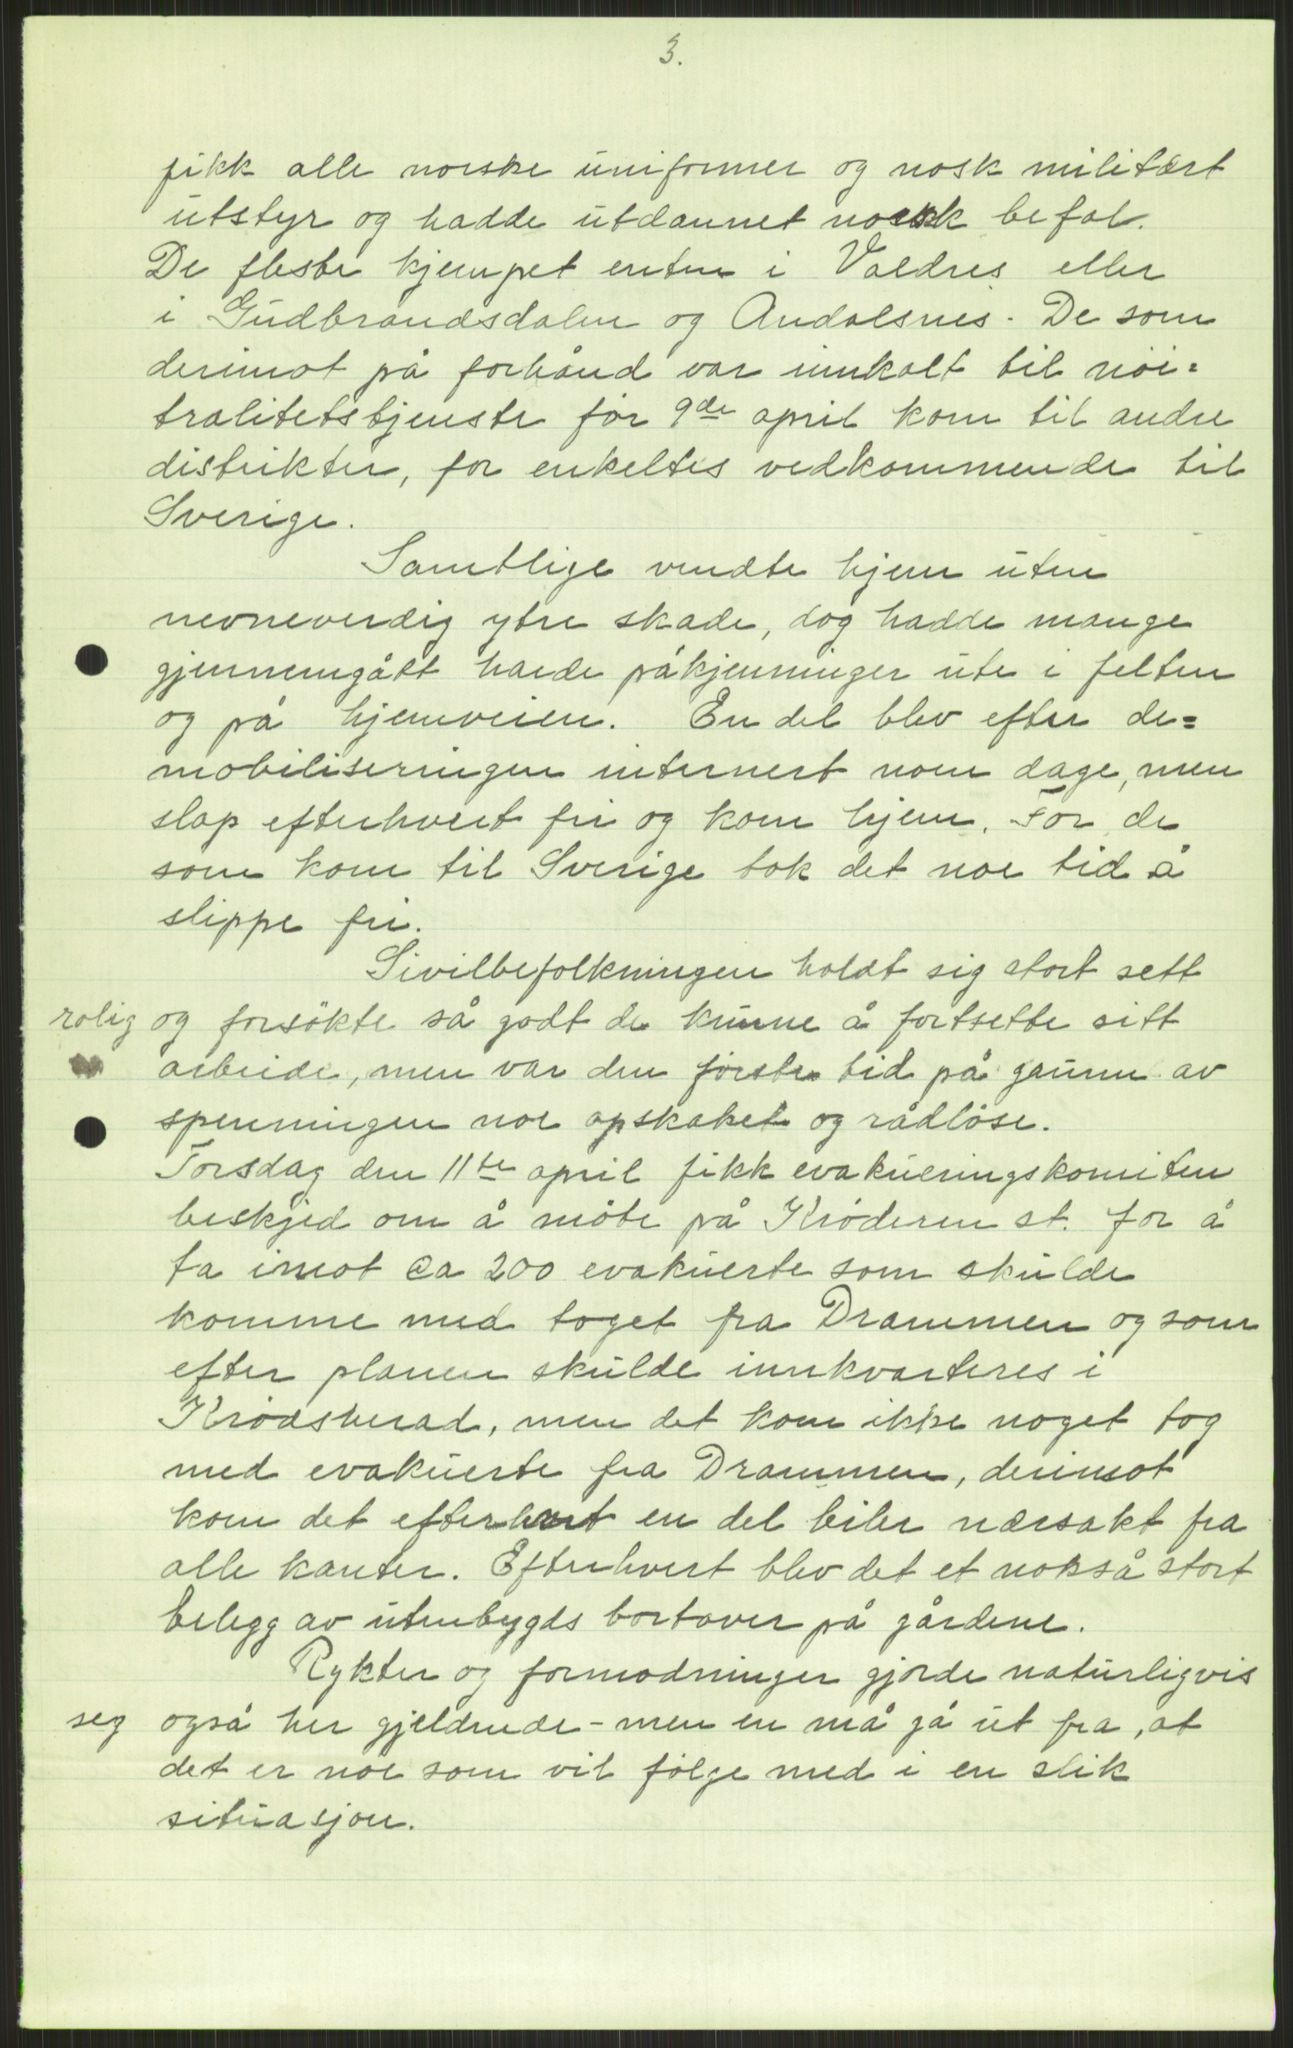 3.
fikk alle norske uniformer og nosk militært
utstyr og hadde utdannet norsk befal.
De fleste kjempet enten i Valdres eller
i Gudbrandsdalen og Andalsnes. De som
derimot på forhånd var innkalt til nöi=
tralitetstjeneste før 9de april kom til andre
distrikter, for enkeltes vedkommende til
Sverige.
Samtlige vendte hjem uten
nevneverdig ytre skade, dog hadde mange
gjennemgått harde påkjenninger ute i felten
og på hjemveien. En del blev efter de=
mobiliseringen internert noen dage, men
slap efterhvert fri og kom hjem. For de
som kom til Sverige tok det noe tid å
slippe fri.
Sivilbefolkningen holdt sig stort sett
rolig og forsökte så godt de kunne å fortsette sitt
arbeide, men var den første tid på grunn av
spenningen noe opskaket og rådlöse.
Torsdag den 11te april fikk evakueringskomiteen
beskjed om å möte på Krøderen st. for å
ta imot ca 200 evakuerte som skulde
komme med toget fra Drammen og som
efter planen skulde innkvarteres i
Krødsherad, men det kom ikke noget tog
med evakuerte fra Drammen, derimot
kom det efterhvert en del biler nærsakt fra
alle kanter. Efterhvert blev det et nokså stort
belegg av utenbygds bortover på gårdene.
Rykter og formodninger gjorde naturligvis
seg også her gjeldende – men en må gå ut fra, at
det er noe som vil følge med i en slik
situasjon.